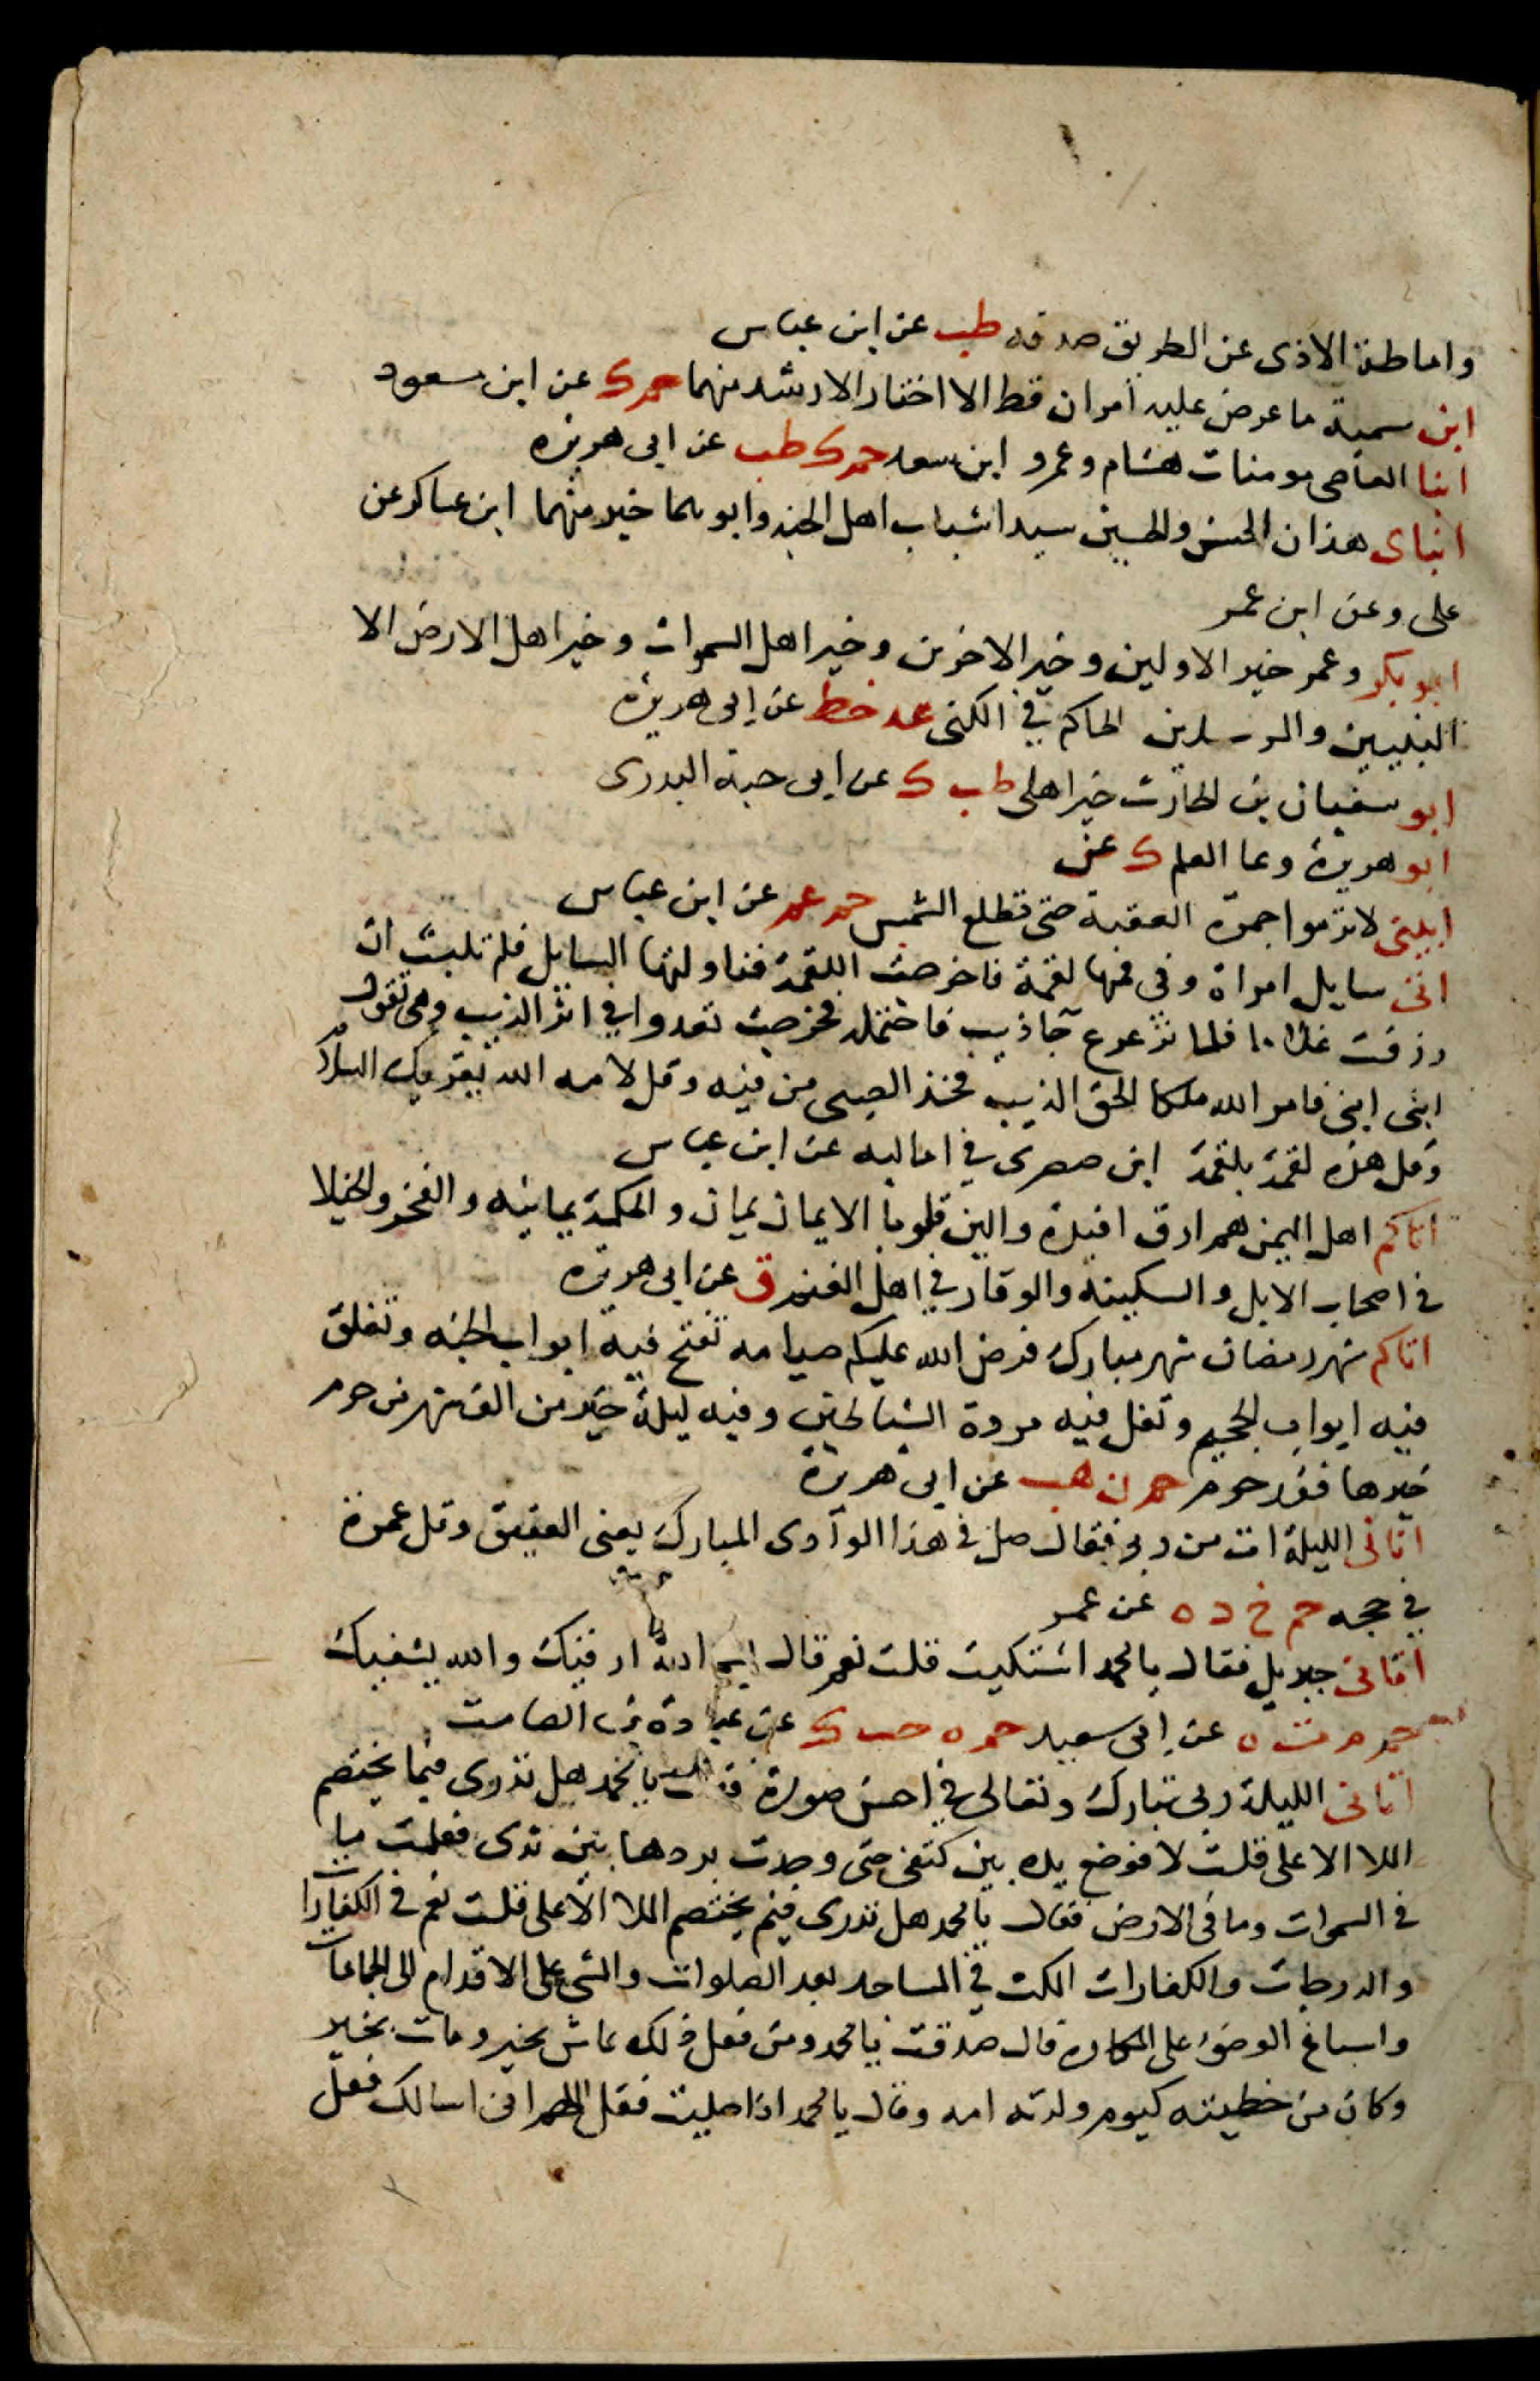 واماطة الاذى عن الطريق صدقه طب عن ابن عباس
ابن سمية ما عرض عليه امران قط الا اختار الارشد منهما حم ك عن ابن سعود
ابنا العاصى مومنات هشام وعمرو ابن سعد حم ك طب عن ابى هريره
ابناى هذان الحسن والحسين سيدا شباب اهل الجنه وابوهما خير منهما ابن عساكر عن
على وعن ابن عمر
ابو بكر وعمر خير الاولين وخير الاخرين وخير اهل السموات وخير اهل الارض الا
النبيين والمرسلين الحاكم في الكنى عد خط عن ابى هريره
ابو سفيان بن الحارث خير اهلى طب ك عن ابى حبة البدرى
ابو هريرة وعا العلم ك عن
ابينى لا ترموا جمرة العقبة حتى تطلع الشمس حم عمد عن ابن عباس
اتى سايل امراة وفى فمها لقمة فاخرجت اللقمة فناولتها السايل فلم تلبث ان
رزقت غلاما فلما ترعرع جا ذيب فاحتمله فخرجت تعدوا في اثر الذيب وهى تقول
ابنى ابنى فامر الله ملكا الحق الذيب فخذ الصبى من فيه وقل لامه الله يقريك السلام
وقل هذه لقمة بلقمة ابن صصرى في اماليه عن ابن عباس
اتاكم اهل اليمن هم ارق افيدة والين قلوبا الايمان يمان والحكمة يمانيه والفخر والخيلا
فى اصحاب الابل والسكينه والوقار في اهل الغنم ق عن ابى هريره
اتاكم شهر رمضان شهر مبارك فرض الله عليكم صيامه تفتح فيه ابواب الجنه وتغلق
فيه ابواب الجحيم وتغل فيه مردة الشياطين وفيه ليلة خير من الف شهر من حرم
خيرها فقد حرم حم ن هب عن ابى هريرة
اتانى الليلة ات من ربى فقال صل فى هذا الوادى المبارك يعنى العقيق وقل عمرة
في حجه حم خ د ه عن عمر
اتانى جبريل فقال يا محمد اشتكيت قلت نعم قال بسم الله ارقيك والله يشفيك
حم م ت ه عن ابى سعيد حم ه حب ك عن عبادة بن الصامت
اتانى الليلة ربى تبارك وتعالى في احسن صورة فقال يا محمد هل تدرى فيما يختصم
الملا الاعلى قلت لا فوضع يده بين كتفى حتى وجدت بردها بين ثدى فعلمت ما
فى السموات وما فى الارض فقال يا محمد هل تدرى فيم يختصم الملا الاعلى قلت نعم فى الكفارات
والدرجات والكفارات المكث في المساجد بعد الصلوات والمشى على الاقدام الى الجماعات
واسباغ الوضوء على المكاره قال صدقت يا محمد ومن فعل ذلك عاش بخير ومات بخير
وكان من خطيته كيوم ولدته امه وقال يا محمد اذا صليت فقل اللهم انى اسالك فعل